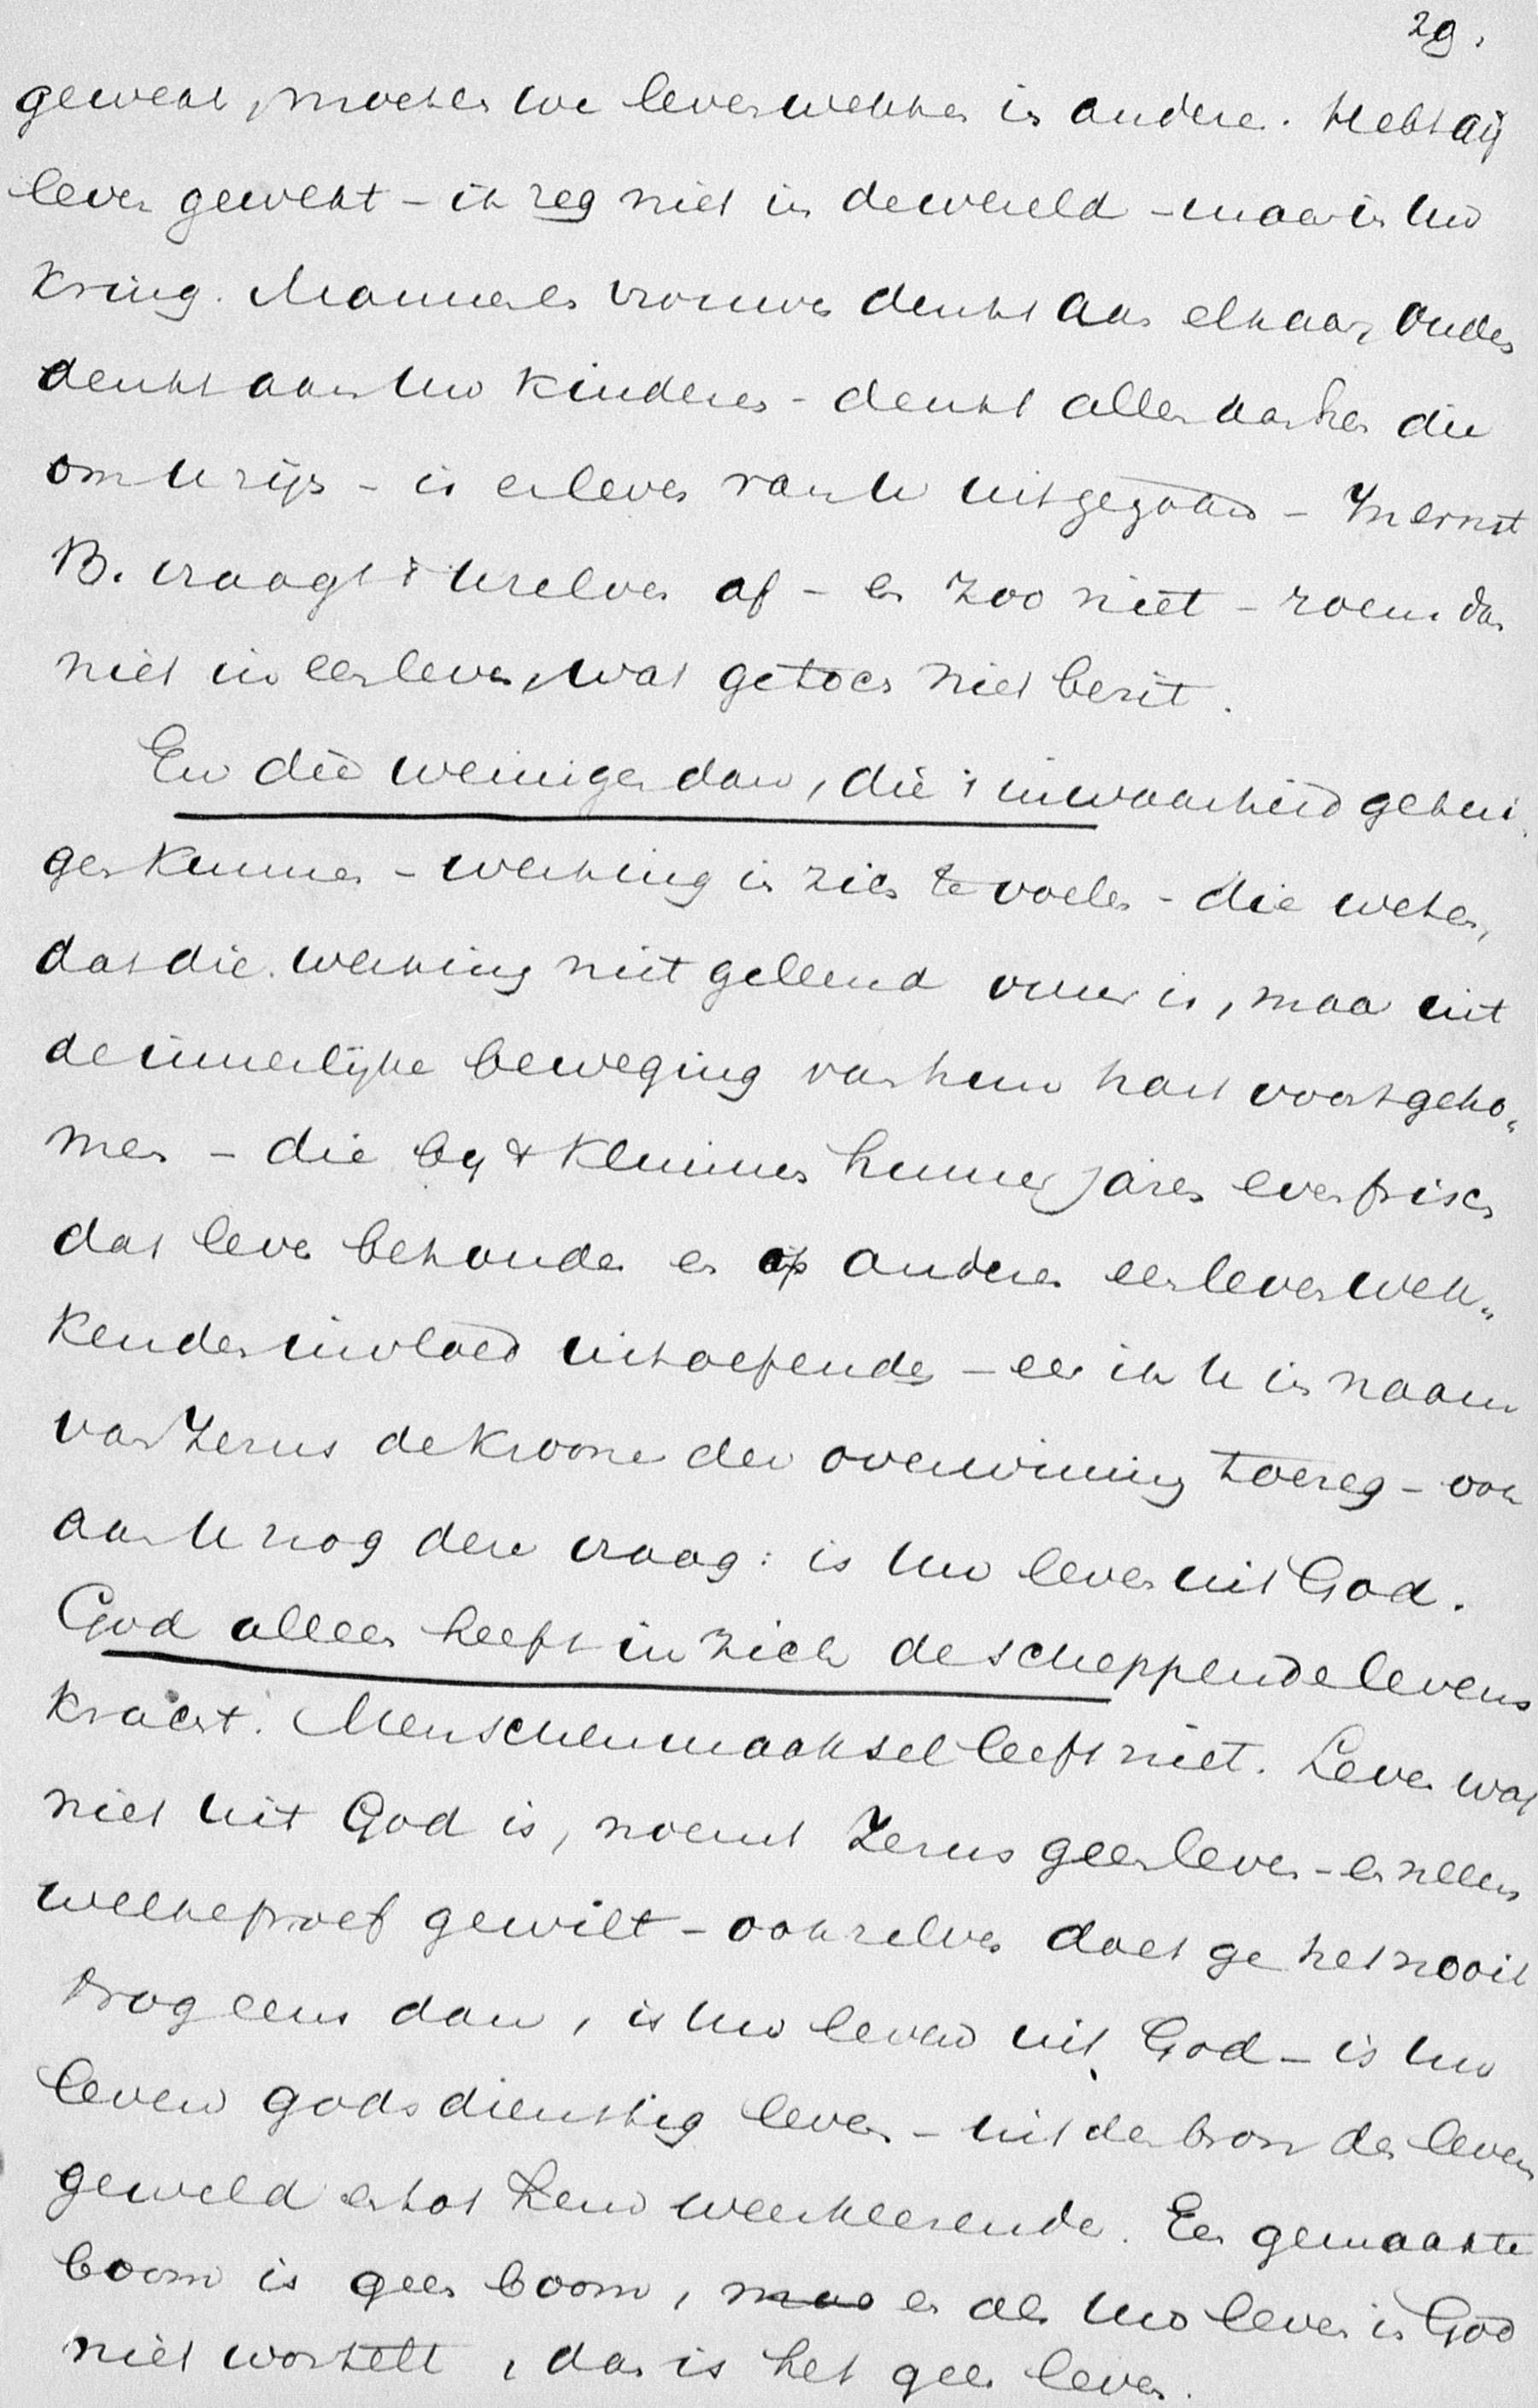 29.
gewekt, moeten we leven wekken in andere. Hebt gij
leven gewekt – ik zeg niet in de wereld – maar in Uw
Kring. Mannen en vrouwen denkt aan elkaar, Ouders
denkt aan Uw Kinderen – denkt allen aan hen die
om U zijn – is er leven van U uitgegaan – In ernst
B. vraagt 't Uzelven af – en zoo niet – roem dan
niet in een leven, wat ge toch niet bezit.
En die weinigen dan, die 't in waarheid getui
gen Kunnen – werking in zich te voelen – die weten,
dat die werking niet gillend vuur is, maar uit
de innerlijke beweging van hun hart voortgeko„
men – die by 't Klimmen hunner jaren even frisch
dat leven behouden en op anderen een leven wek„
Kenden invloed uitoefenden – eer ik U in naam
van Jezus de Kroone der overwinning toezeg – ook
aan U nog den vraag: is Uw leven uit God.
God alleen heeft in zich de scheppende levens
Kracht. Menschenmaaksel leeft niet. Leven wat
niet uit God is, noemt Jezus geen leven – en
welke proef ge wilt – ook zelven doet ge het nooit
Vrag eens dan, is Uw leven uit God – is Uw
leven godsdienstig leven – uit de bron des levens
geweld en tot Hem weerkeerende. Een gemaakte
boom is geen boom, maa en als Uw leven in God
niet wortelt, dan is het geen leven.